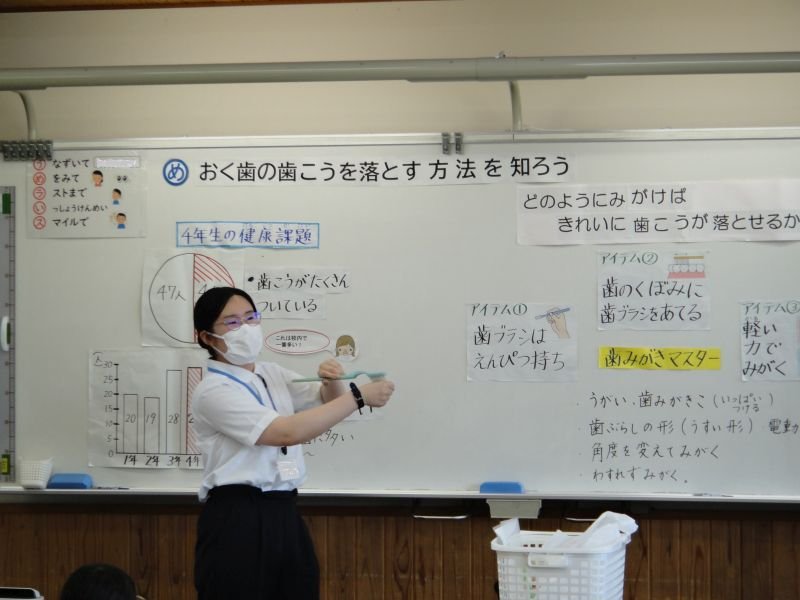 う なずいて
め をみて
ラ ストまで
い っしょうけんめい
ス マイルで
め おく歯の歯こうを落とす方法を知ろう
どのようにみがけば
きれいに歯こうが落とせるか
4年生の健康課題
47人
・歯こうがたくさん
ついている
これは校内で
一番多い！
アイテム①
歯ブラシは
えんぴつ持ち
アイテム②
歯のくぼみに
歯ブラシをあてる
アイテム③
軽い
力で
みがく
歯みがきマスター
・うがい・歯みがきこ（いっぱいつける）
・歯ぶらしの形（うすい形）・電動
・角度を変えてみがく
・わすれずみがく。
(人)
30
25
20
15
10
5
0
20 19 28
1年 2年 3年 4年